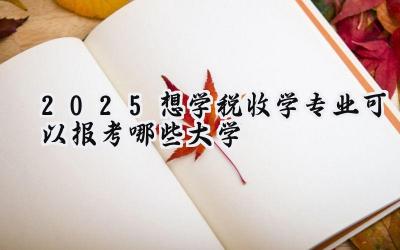 2025想学税收学专业可
以报考哪些大学